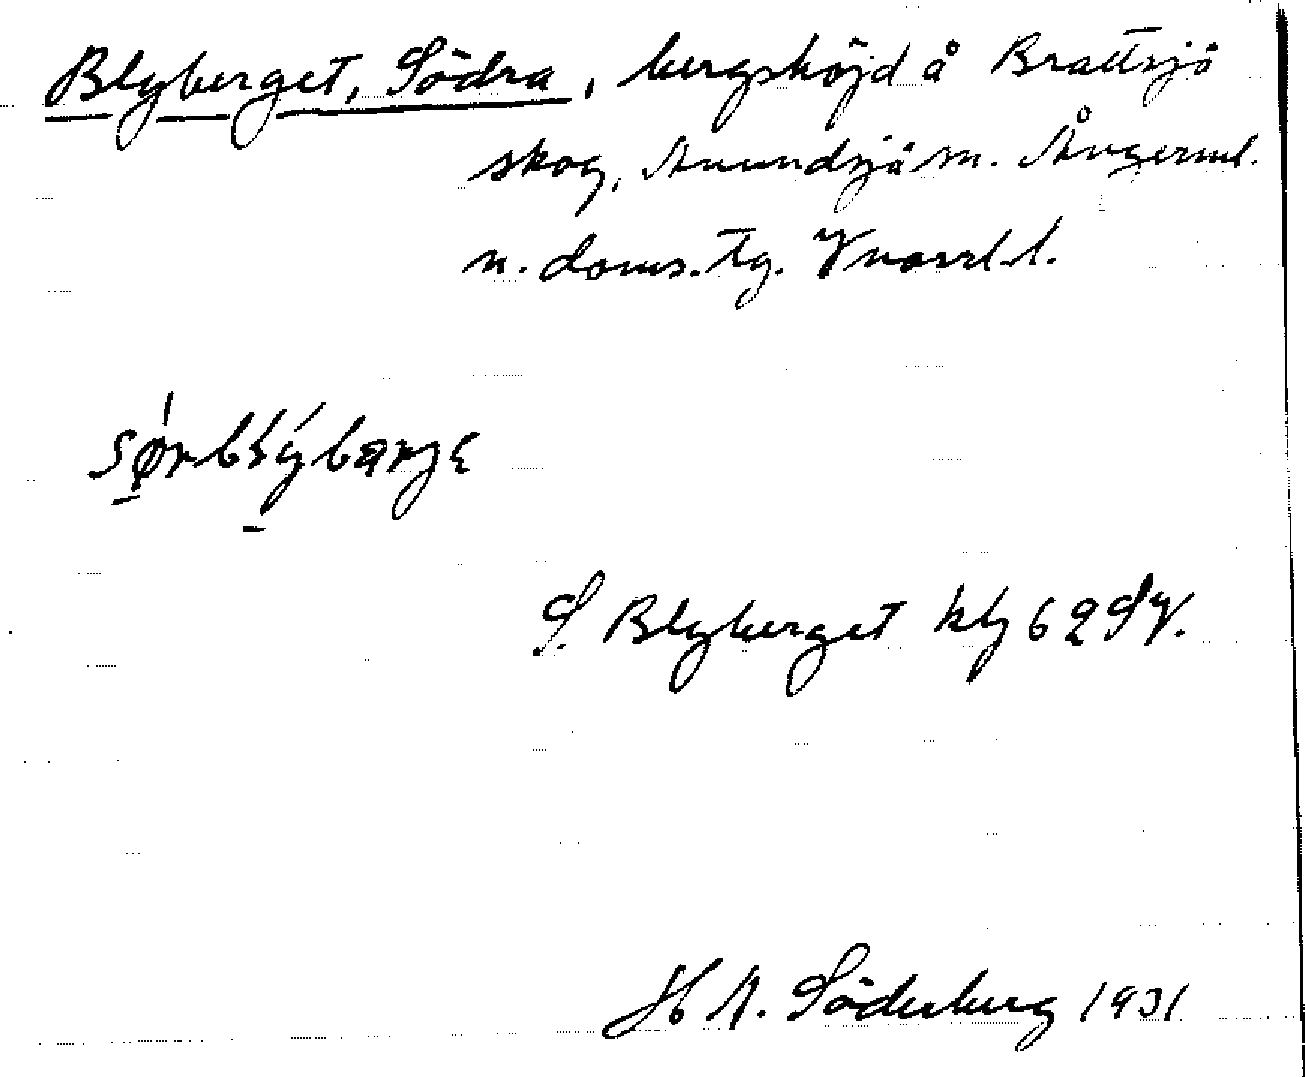 Blyberget, Södra, bergshöjd å Brattsjö
skog, Anundsjö sn. Ångerml.
n. doms. tg. Vnorrl. l.
S. Blyberget kbl 62 SV.
H A. Söderberg 1931